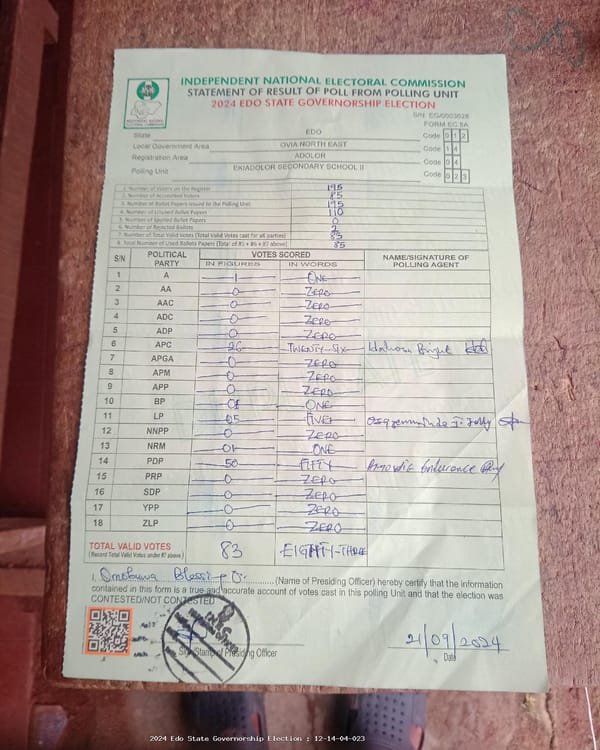 INDEPENDENT NATIONAL ELECTORAL COMMISSION
STATEMENT OF RESULT OF POLL FROM POLLING UNIT
2024 EDO STATE GOVERNORSHIP ELECTION
S/N: EG/0003028
FORM EC 8A
State EDO Code 0 1 2
Local Government Area OVIA NORTH EAST Code 1 4
Registration Area ADOLOR Code 0 4
Polling Unit EKIADOLOR SECONDARY SCHOOL II Code 0 2 3
1. Number of Voters on the Register 195
2. Number of Accredited Voters 85
3. Number of Ballot Papers Issued to the Polling Unit 195
4. Number of Unused Ballot Papers 110
5. Number of Spoiled Ballot Papers 0
6. Number of Rejected Ballots 2
7. Number of Total Valid Votes (Total Valid Votes cast for all parties) 83
8. Total Number of Used Ballots Papers (Total of #5 + #6 + #7 above) 85
S/N POLITICAL PARTY VOTES SCORED NAME/SIGNATURE OF POLLING AGENT
IN FIGURES IN WORDS
1 A 1 ONE
2 AA 0 ZERO
3 AAC 0 ZERO
4 ADC 0 ZERO
5 ADP 0 ZERO
6 APC 26 TWENTY-SIX
7 APGA 0 ZERO
8 APM 0 ZERO
9 APP 0 ZERO
10 BP 01 ONE
11 LP 05 FIVE
12 NNPP 0 ZERO
13 NRM 01 ONE
14 PDP 50 FIFTY
15 PRP 0 ZERO
16 SDP 0 ZERO
17 YPP 0 ZERO
18 ZLP 0 ZERO
TOTAL VALID VOTES 83 EIGHTY-THREE
(Record Total Valid Votes under #7 above)
I, Blessing O. (Name of Presiding Officer) hereby certify that the information
contained in this form is a true and accurate account of votes cast in this polling Unit and that the election was
CONTESTED/NOT CONTESTED
21/09/2024
Sign/Stamp of Presiding Officer Date
2024 Edo State Governorship Election : 12-14-04-023